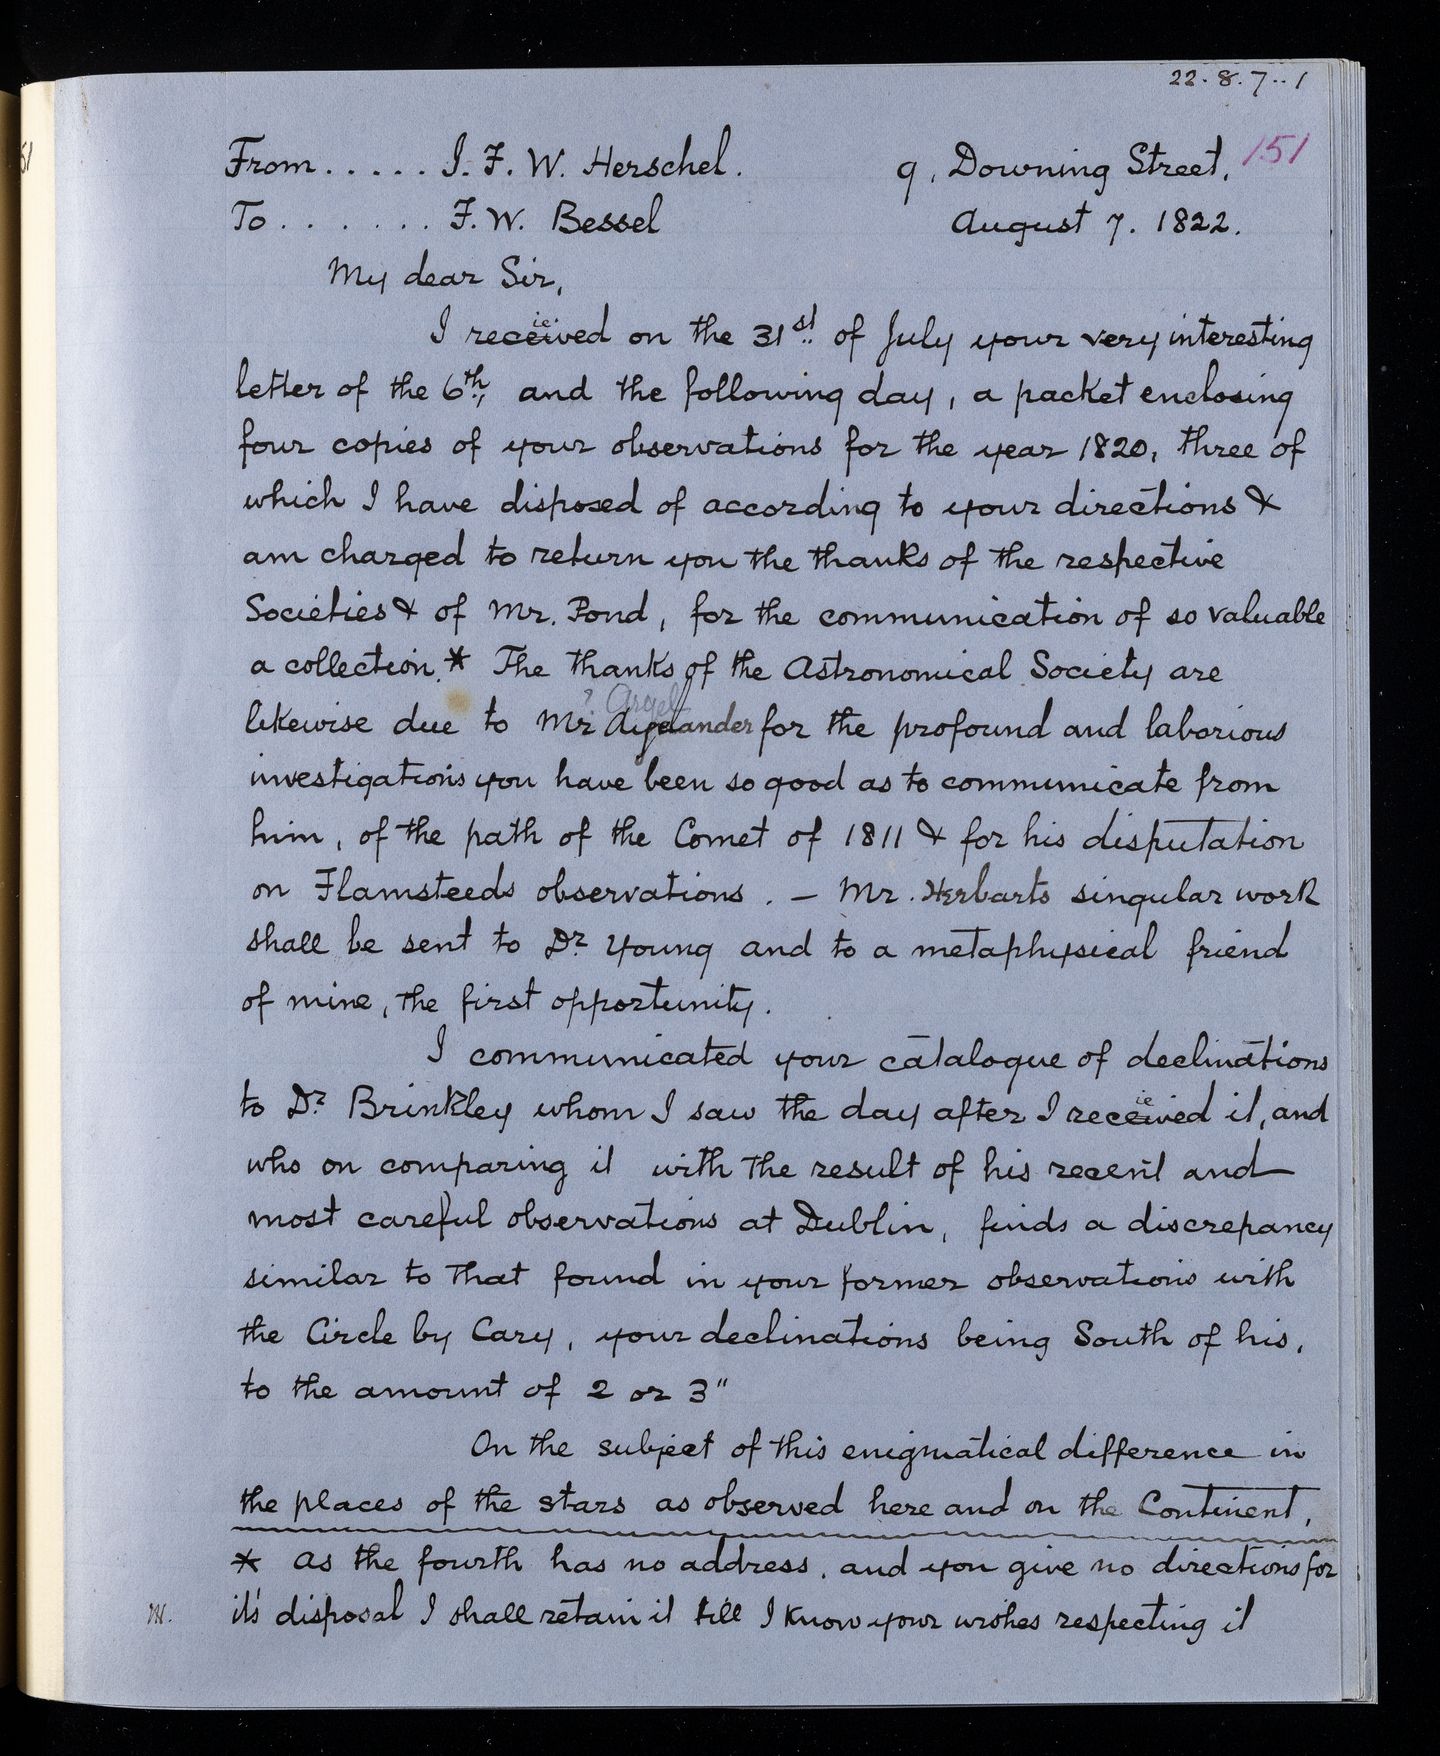 22.8.7..1
151
From ..... J. F. W. Herschel.
9, Downing Street,
To ....... F. W. Bessel
August 7. 1822.
My dear Sir,
I received on the 31st. of July your very interesting
letter of the 6th, and the following day, a packet enclosing
four copies of your observations for the year 1820, three of
which I have disposed of according to your directions &
am charged to return you the thanks of the respective
Societies & of Mr. Pond, for the communication of so valuable
a collection.* The thanks of the Astronomical Society are
? Argel
likewise due to Mr Aygelander for the profound and laborious
investigations you have been so good as to communicate from
him, of the path of the Comet of 1811 & for his disputation
on Flamsteeds observations. — Mr. Herbarts singular work
shall be sent to Dr Young and to a metaphysical friend
of mine, the first opportunity.
I communicated your catalogue of declinations
to Dr Brinkley whom I saw the day after I received it, and
who on comparing it with the result of his recent and
most careful observations at Dublin, finds a discrepancy
similar to that found in your former observations with
the Circle by Cary, your declinations being South of his,
to the amount of 2 or 3"
On the subject of this enigmatical difference in
the places of the stars as observed here and on the Continent,
* as the fourth has no address, and you give no directions for
it's disposal I shall retain it till I know your wishes respecting it